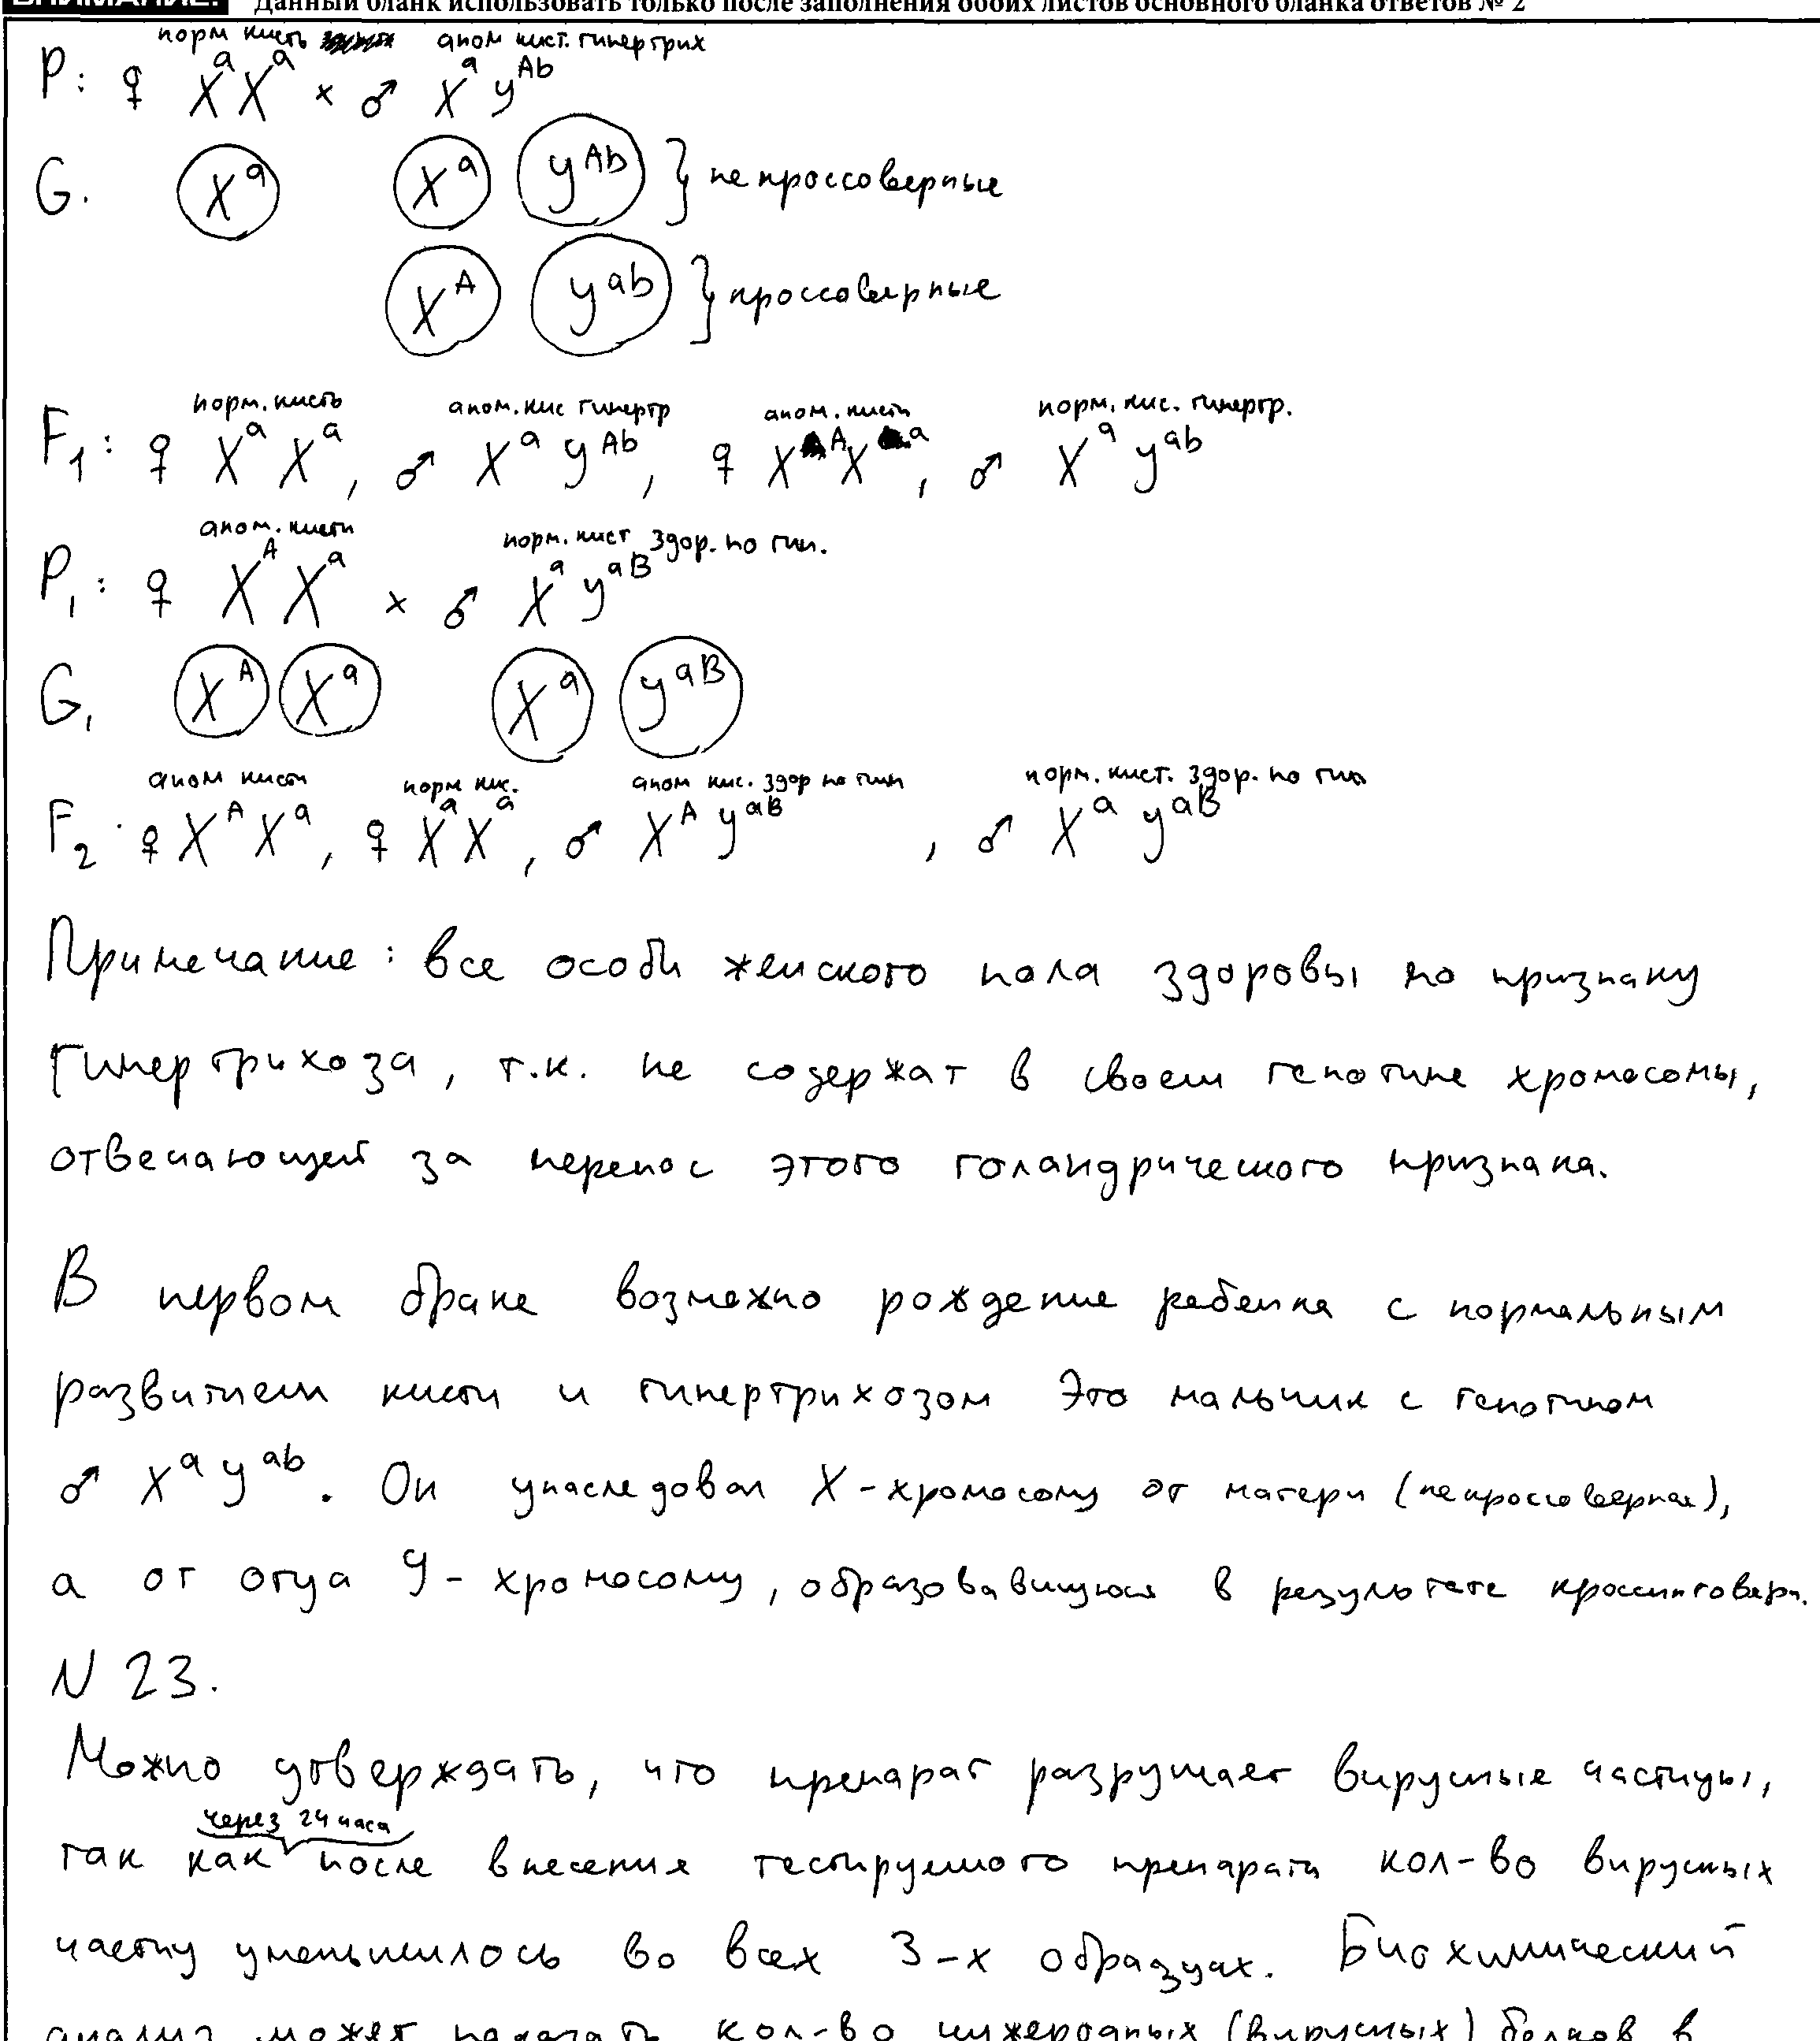 ВНИМАНИЕ! Данный бланк использовать только после заполнения обоих листов основного бланка ответов № 2
норм кисть аном кист. гипертрих
P: ♀ XᵃXᵃ × ♂ Xᵃ yᴬᵇ
G. Xᵃ Xᵃ yᴬᵇ } некроссоверные
Xᴬ yᵃᵇ } кроссоверные
норм. кисть аном. кис гипертр аном. кисти норм. кис. гипертр.
F₁: ♀ Xᵃ Xᵃ, ♂ Xᵃ yᴬᵇ, ♀ XᴬXᵃ, ♂ Xᵃ yᵃᵇ
аном. кисти норм. кист здор. по гип.
P₁: ♀ Xᴬ Xᵃ × ♂ Xᵃ yᵃᴮ
G₁ Xᴬ Xᵃ Xᵃ yᵃᴮ
аном кисти норм кис. аном кис. здор по гип норм. кист. здор. по гип
F₂. ♀ Xᴬ Xᵃ, ♀ XᵃXᵃ, ♂ Xᴬ yᵃᴮ, ♂ Xᵃ yᵃᴮ
Примечание: все особи женского пола здоровы по признаку
гипертрихоза, т.к. не содержат в своем генотипе хромосомы,
отвечающей за перенос этого голандрического признака.
В первом браке возможно рождение ребенка с нормальным
развитием кисти и гипертрихозом Это мальчик с генотипом
♂ Xᵃ yᵃᵇ. Он унаследовал X-хромосому от матери (некроссоверная),
а от отца y-хромосому, образовавшуюся в результате кроссинговера.
N 23.
Можно утверждать, что препарат разрушает вирусные частицы,
через 24 часа
так как после внесения тестируемого препарата кол-во вирусных
частиц уменьшилось во всех 3-х образцах. Биохимический
анализ может показать кол-во чужеродных (вирусных) белков в